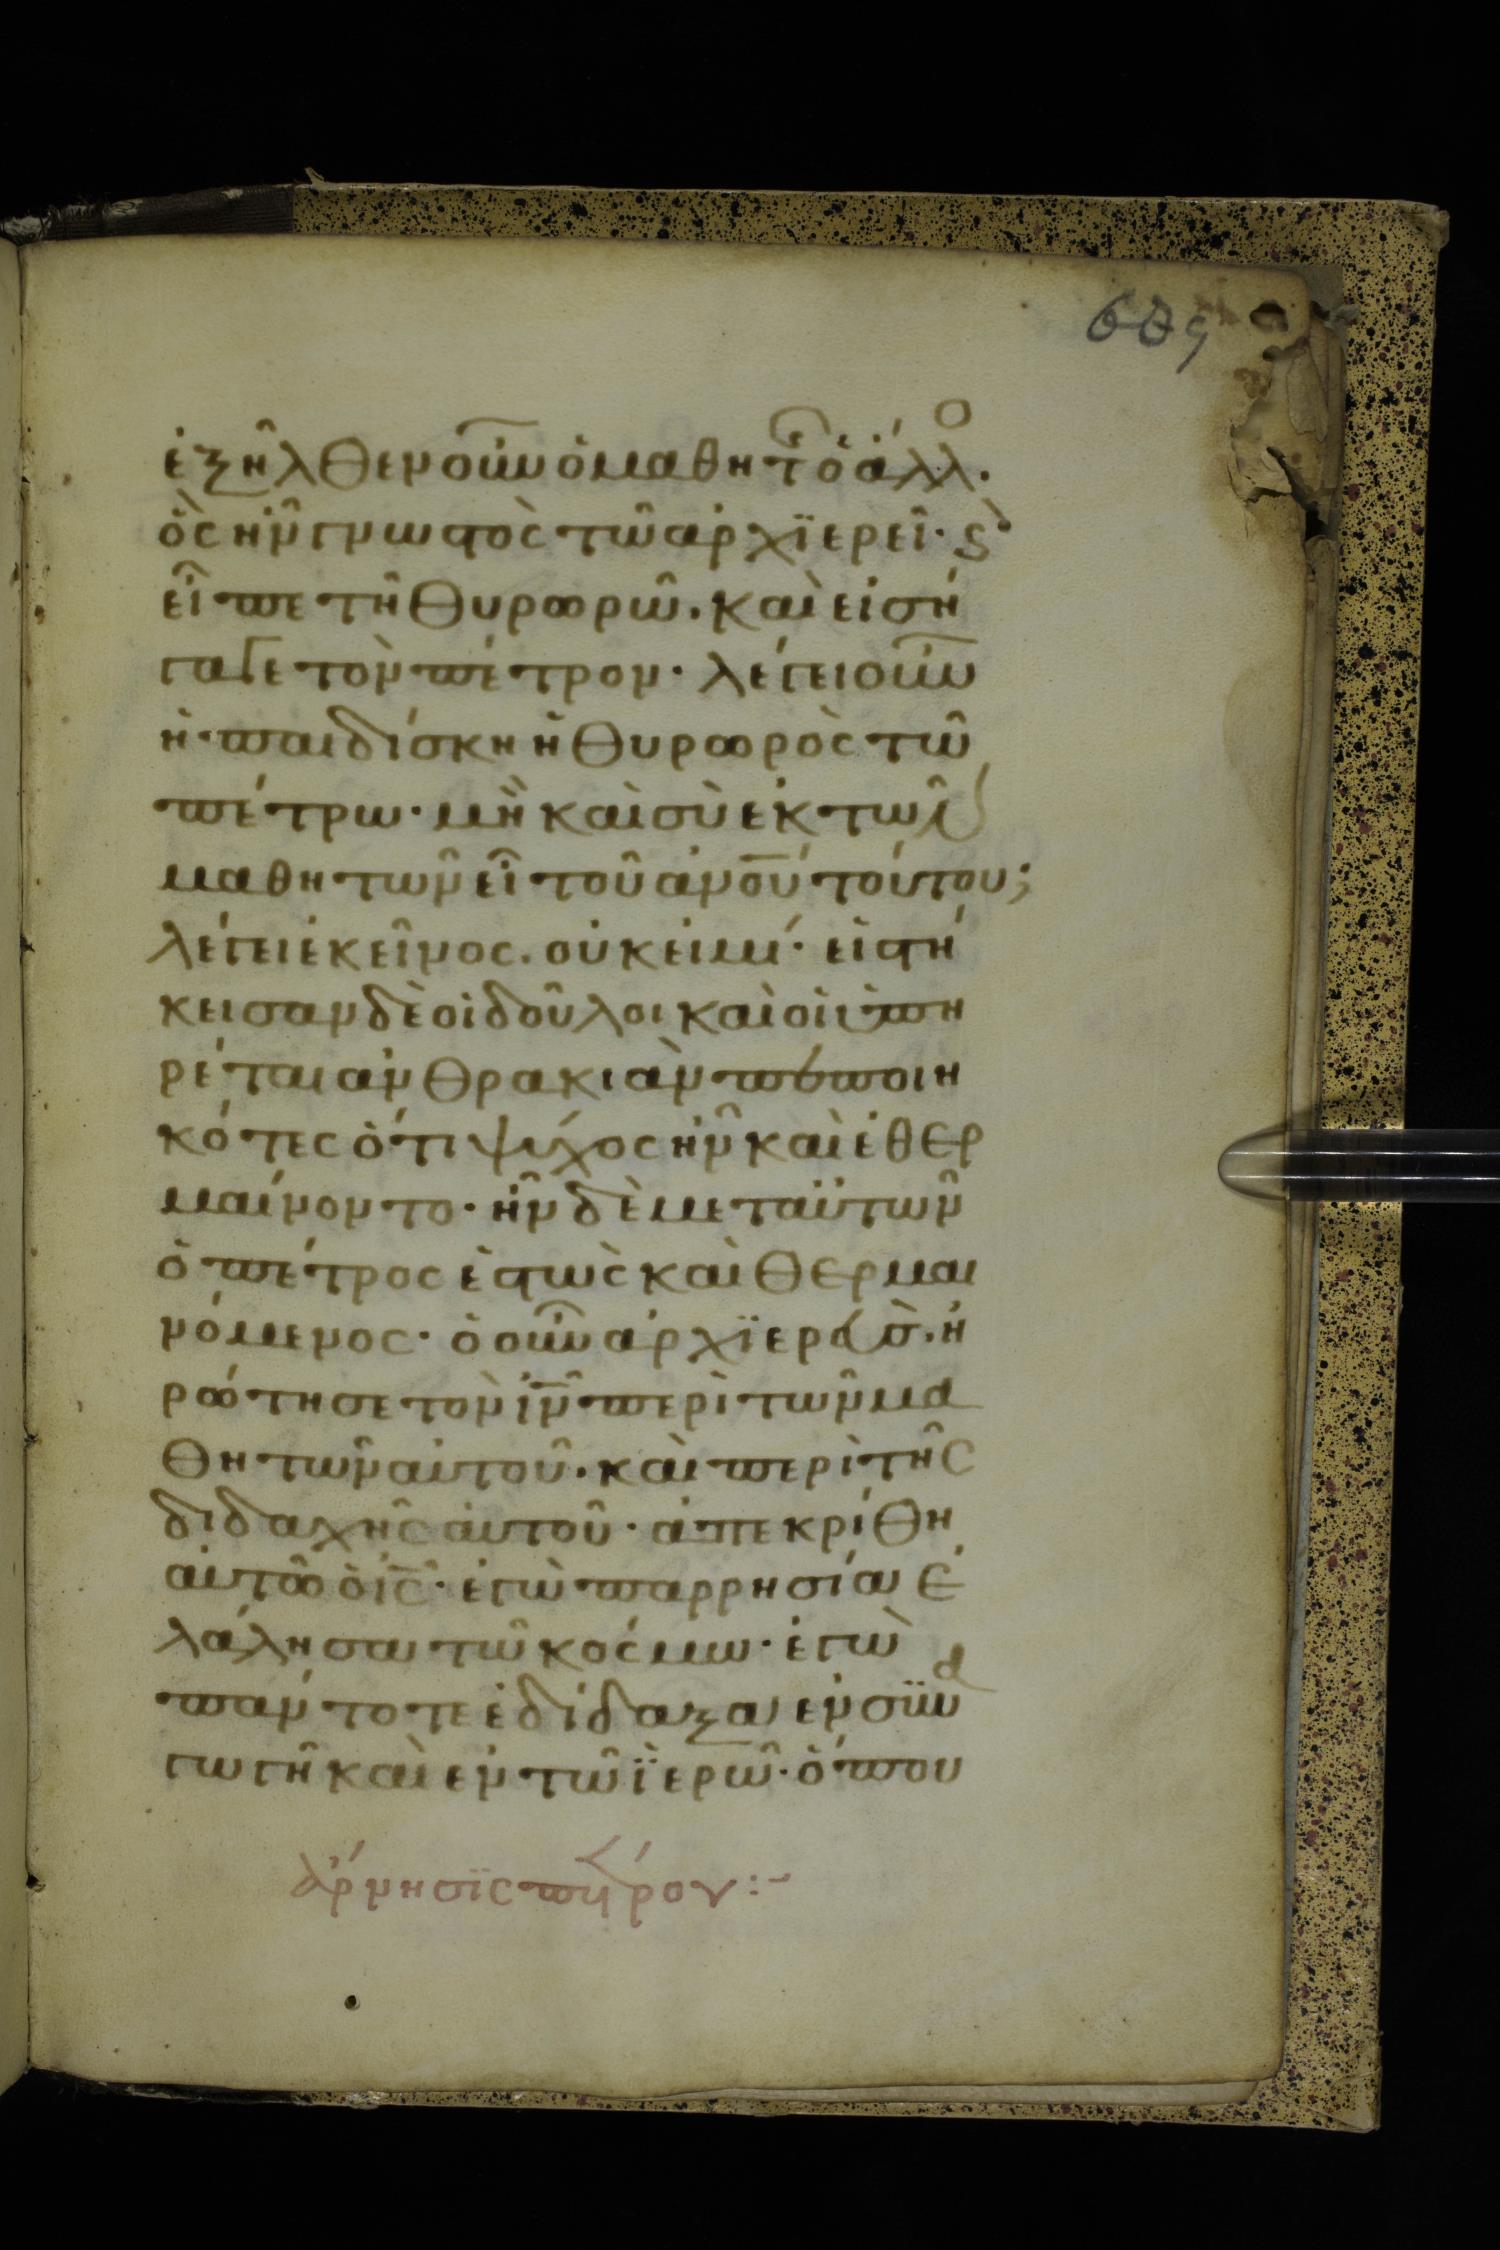 ἐξῆλθεν οὖν ὁ μαθητ ὁ ἄλλο.
ὃς ἦν γνωστὸς τῶ ἀρχϊερεῖ· ϛ
εἶπε τῆ θυρωρῶ. καὶ εἰσή
γαγε τὸν πέτρον· λέγει οὖν
ἡ παιδίσκη ἡ θυρωρὸς τῶ
πέτρω· μὴ καὶ σὺ ἐκ τῶν
μαθητῶν εἶ τοῦ ἀνου τούτου;
λέγει ἐκεῖνος. οὐκ εἰμί· εἱστή
κεισαν δὲ οἱ δοῦλοι καὶ οἱ ὑπη
ρέται ἀνθρακιὰν πεποιη
κότες ὅτι ψύχος ἦν καὶ ἐθερ
μαίνοντο· ἦν δὲ μετ αὐτῶν
ὁ πέτρος ἑστὼς καὶ θερμαι
νόμενος· ὁ οὖν ἀρχϊερεὺσ. ἠ
ρώτησε τὸν ἰν περὶ τῶν μα
θητῶν αὐτοῦ. καὶ περὶ τῆς
διδαχῆς αὐτοῦ· ἀπεκρίθη
αὐτῶ ὁ ἰς· ἐγὼ παρρησία ἐ
λάλησα τῶ κόσμω· ἐγὼ
πάντοτε ἐδίδαξα ἐν σϋνα
γωγῆ καὶ ἐν τῶ ϊερῶ· ὅπου
ἄρνησϊς πέτρου:~